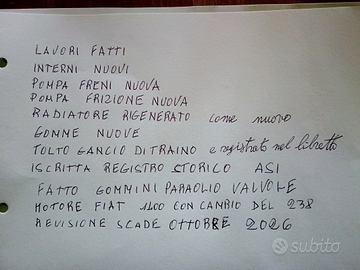 LAVORI FATTI
INTERNI NUOVI
POMPA FRENI NUOVA
POMPA FRIZIONE NUOVA
RADIATORE RIGENERATO come nuovo
GOMME NUOVE
TOLTO GANCIO DI TRAINO e registrato nel libretto
ISCRITTA REGISTRO STORICO ASI
FATTO GOMMINI PARAOLIO VALVOLE
MOTORE FIAT 1100 CON CAMBIO DEL 238
REVISIONE SCADE OTTOBRE 2026
subito